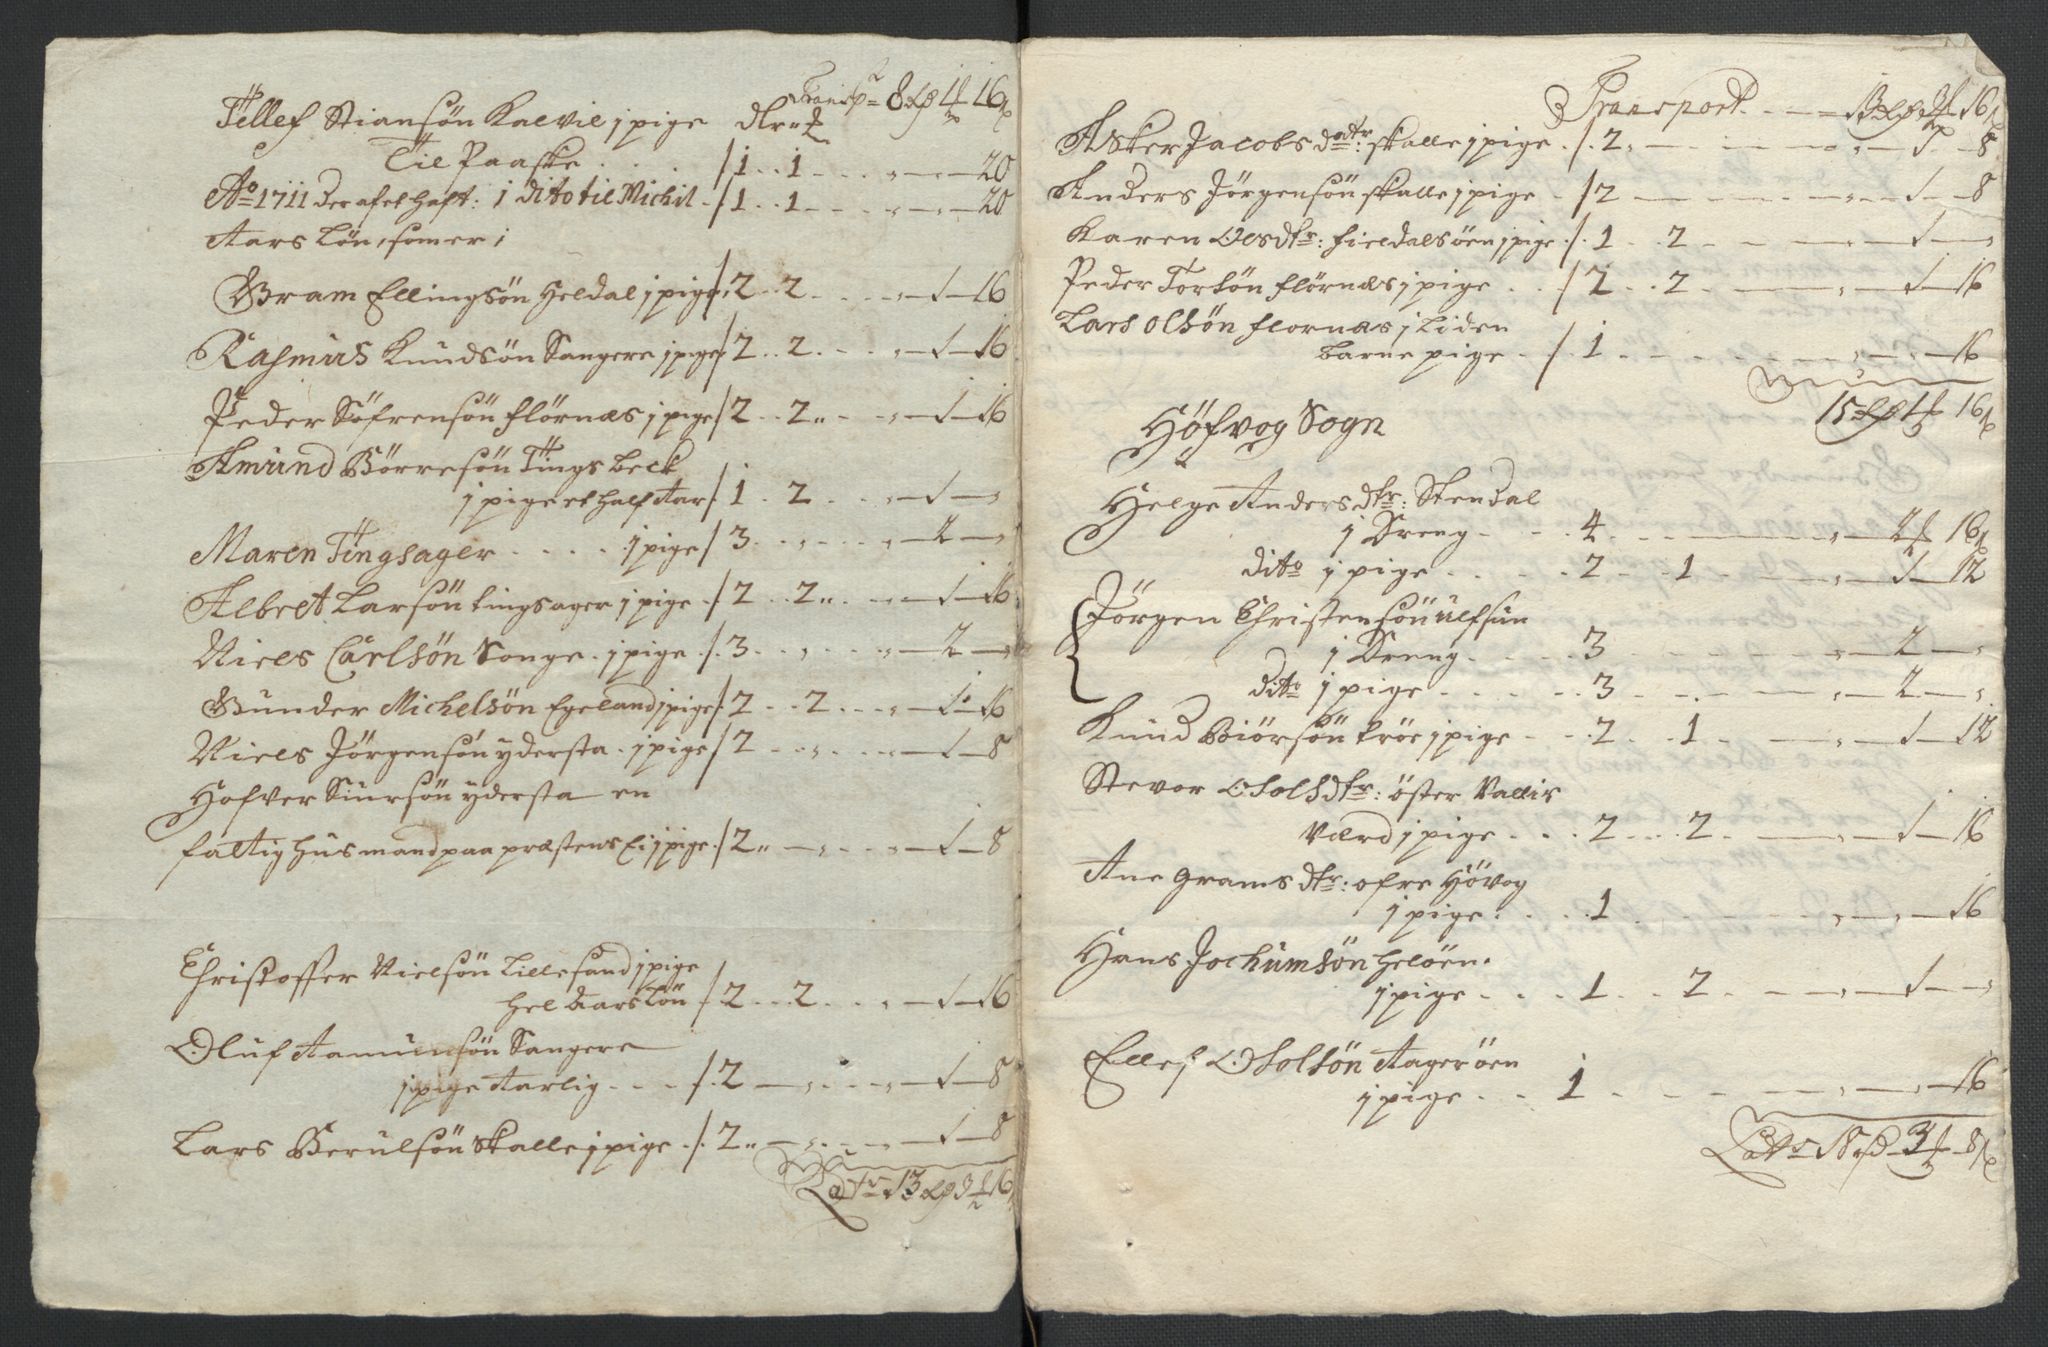 Transp: 8 rd 1 16
Tellef Stiansön Kalvie j pige dlr
Til Paaske . . . . /1 . . 1 . . . . 20
Ao 1711 der afet haft: i dito til Michil ./1 . . 1 . . . . 20
Aars Lön, som er i
Gram Ellingsön Heldal j pige /2 . . 2 . . . . 1 — 16
Rasmus Knudsön Sangere j pige /2 . . 2 . . . . 1 — 16
Peder Söfrensön flörnæs j pige /2 . . 2 . . . . 1 — 16
Amund Börresön Tings beck
j pige et half Aar /1 . . 2 . . . . 1 —
Maren Tingsager . . . . j pige / 3 . . . . 2 —
Albret Larsön tingsager j pige ./2 . . 2 . . . . 1 — 16
Niels Carlsön Songe . j pige ./. 3 . . . . 2 —
Gunder Michelsön Egeland j pige /. 2 . . 2 . . . . 1 — 16
Niels Jörgensön ydersta . j pige / 2 . . . . 1 — 8
Hofver Siursön ydersta en
fattig husmand paa præstens Ei j pige ./2 . . . . 1 — 8
Christoffer Nielsön Lillesand j pige
hel Aars Lön /2 . . 2 . . . . 1 — 16
Oluf Aamunsön Sangere
j pige Aarlig . . . /. 2 — 1 — 8
Lars Berulsön Skalle j pige ./. 2 — 1 — 8
Latr 13 rd 3 16
Transport . — 13 rd 3 16
Asker Jacobs datr: skalle j pige ./. 2 — 1 — 8
Anders Jörgensön skalle j pige ./2 — 1 — 8
Karen Olsdtr: fieldalsöen j pige ./. 1 . . 2 — 1 —
Peder Torsön flörnæs j pige . . ./2 . . 2 — 1 — 16
Lars Olsön flornæs j Liden
barne pige ./. 1 — 16
15 rd 1 16
Höfvog Sogn
Helge Anders dtr: Stendal
j Dreng . . . 4 — 2 16
dito j pige . . . . 2 . . 1 — 1 — 12
Jörgen Christensön ulfsun
j Dreng . . . . 3 — 2 —
dito j pige . . . . 3 — 2 —
Knud Biörsön Kröe j pige . . . 2 . . 1 — 1 — 12
Stevor Osolsdtr: öster Vallis
Værd j pige . . . 2 . . 2 — 1 — 16
Ane grams dtr: ofre Hövog
j pige . . . . 1 — 16
Hans Jochumsön heløen .
j pige . . . 1 . . 2 — 1 —
Ellef Osolsön Aagerøen
j pige . . . 1 — 16
Latr 18 rd 3 8